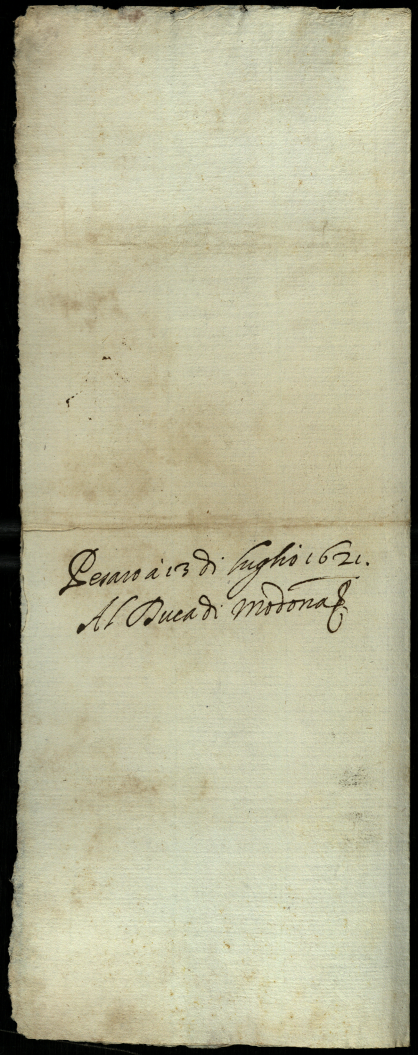 Pesaro à 13 di luglio 1621.
Al Duca di Modona